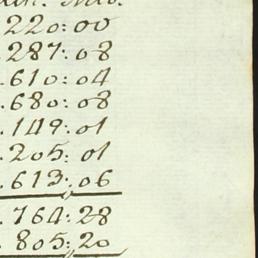 220:00
.287:08
.610:04
.680:08
.149:01
.205:01
.613:06
.764:28
.805:20